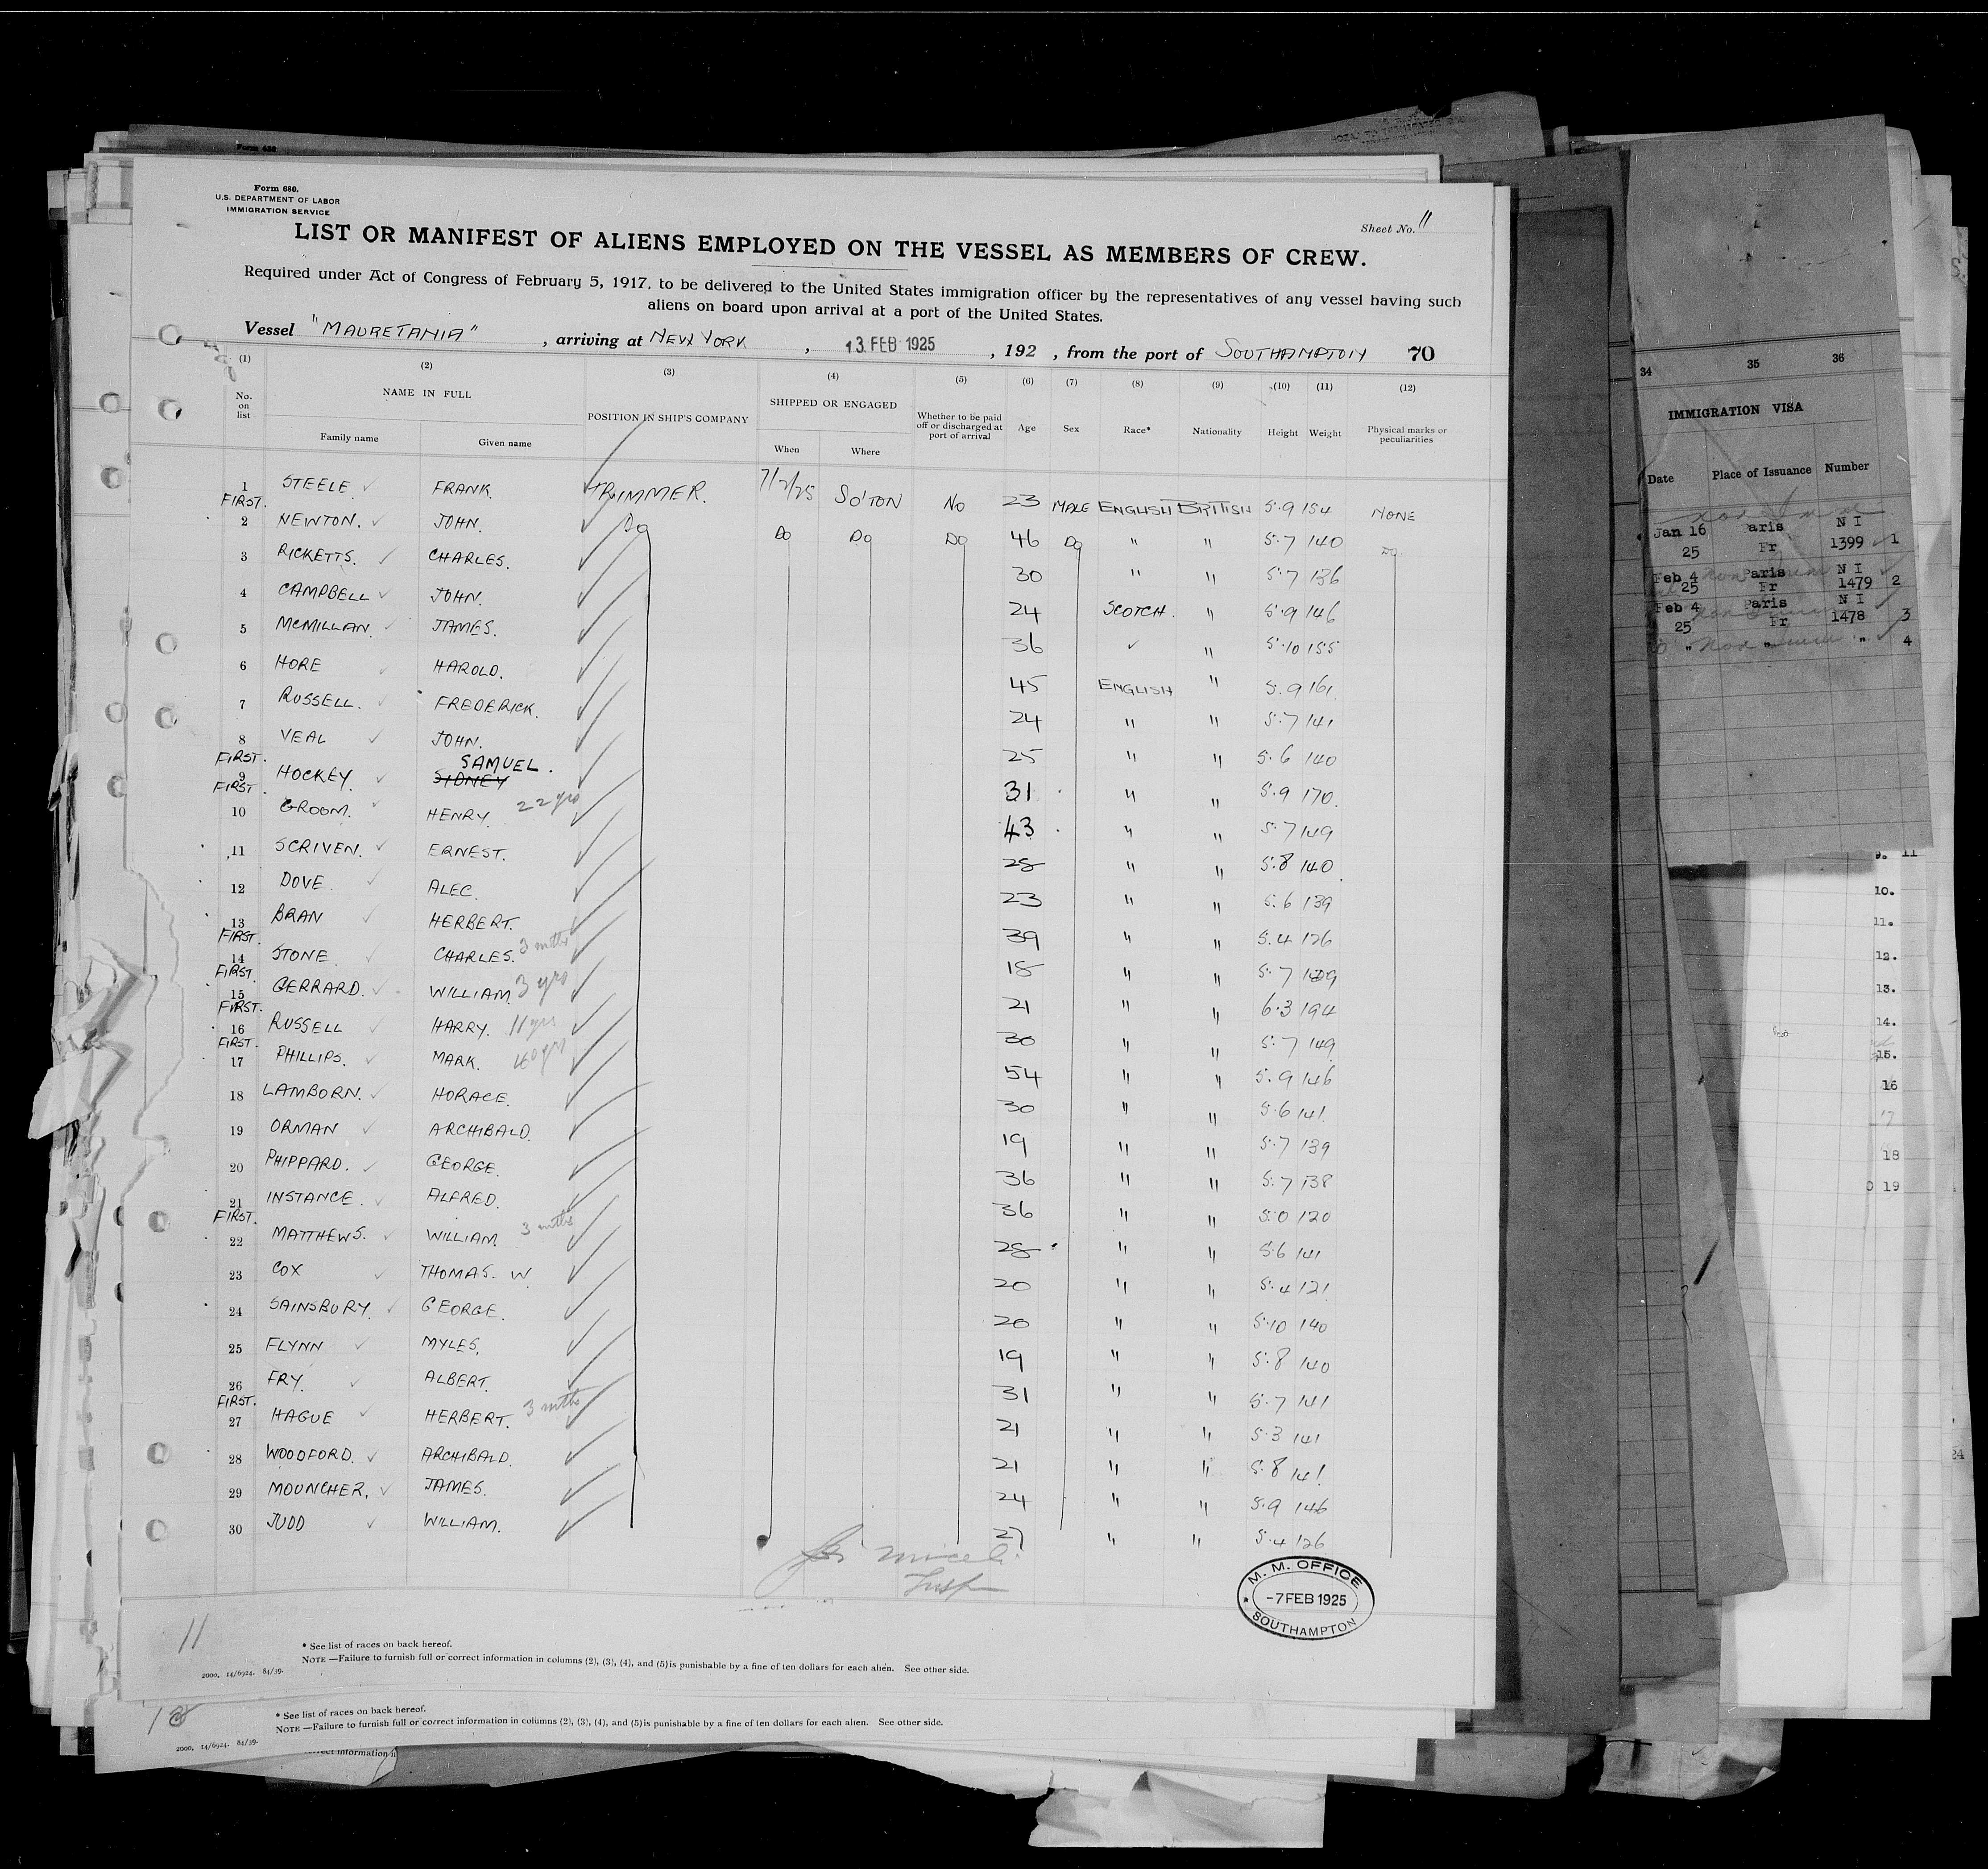 Form 680.
U.S. DEPARTMENT OF LABOR
IMMIGRATION SERVICE
Sheet No. 11
LIST OR MANIFEST OF ALIENS EMPLOYED ON THE VESSEL AS MEMBERS OF CREW.
Required under Act of Congress of February 5, 1917, to be delivered to the United States immigration officer by the representatives of any vessel having such
aliens on board upon arrival at a port of the United States.
Vessel "MAURETANIA", arriving at NEW YORK, 13 FEB 1925, 192 , from the port of SOUTHAMPTON 70
(1) (2) (3) (4) (5) (6) (7) (8) (9) (10) (11) (12)
No. on list NAME IN FULL POSITION IN SHIP'S COMPANY SHIPPED OR ENGAGED Whether to be paid off or discharged at port of arrival Age Sex Race* Nationality Height Weight Physical marks or peculiarities
Family name Given name When Where
1 STEELE FRANK. TRIMMER. 7/2/25 SO'TON NO 23 MALE ENGLISH BRITISH 5.9 154 NONE
FIRST.
2 NEWTON. JOHN. DO DO DO DO 46 DO " " 5.7 140 DO
3 RICKETTS. CHARLES. 30 " " 5.7 136
4 CAMPBELL JOHN. 24 SCOTCH. " 5.9 146
5 McMILLAN. JAMES. 36 " 5.10 155
6 HORE HAROLD. 45 ENGLISH " 5.9 161
7 RUSSELL. FREDERICK. 24 " " 5.7 141
8 VEAL JOHN. 25 " " 5.6 140
FIRST. SAMUEL.
9 HOCKEY. SIDNEY 31 " " 5.9 170.
FIRST.
10 GROOM. HENRY. 22 yrs 43 " " 5.7 149
11 SCRIVEN. ERNEST. 28 " " 5.8 140
12 DOVE. ALEC. 23 " " 5.6 139
13 BRAN HERBERT. 39 " " 5.4 126
FIRST.
14 STONE CHARLES. 3 mths 18 " " 5.7 139
FIRST.
15 GERRARD. WILLIAM. 3 yrs 21 " " 6.3 194
FIRST.
16 RUSSELL HARRY. 11 yrs 30 " " 5.7 149
FIRST.
17 PHILLIPS. MARK. yrs 54 " " 5.9 146
18 LAMBORN. HORACE. 30 " " 5.6 141
19 ORMAN ARCHIBALD. 19 " " 5.7 139
20 PHIPPARD. GEORGE. 36 " " 5.7 138
21 INSTANCE. ALFRED. 36 " " 5.0 120
FIRST.
22 MATTHEWS. WILLIAM. 3 mths 28 " " 5.6 141
23 COX THOMAS. W. 20 " " 5.4 121
24 SAINSBURY. GEORGE. 20 " " 5.10 140
25 FLYNN MYLES. 19 " " 5.8 140
26 FRY. ALBERT. 31 " " 5.7 141
FIRST.
27 HAGUE HERBERT. 3 mths 21 " " 5.3 141
28 WOODFORD. ARCHIBALD. 21 " " 5.8 141
29 MOUNCHER. JAMES. 24 " " 5.9 146
30 JUDD WILLIAM. 27 " " 5.4 126
M. M. OFFICE
-7 FEB 1925
SOUTHAMPTON
11
* See list of races on back hereof.
NOTE —Failure to furnish full or correct information in columns (2), (3), (4), and (5) is punishable by a fine of ten dollars for each alien. See other side.
2000. 14/6924. 84/39.
* See list of races on back hereof.
NOTE —Failure to furnish full or correct information in columns (2), (3), (4), and (5) is punishable by a fine of ten dollars for each alien. See other side.
2000. 14/6924. 84/39.
34 35 36
IMMIGRATION VISA
Date Place of Issuance Number
Jan 16 aris N I
25 Fr 1399 1
Feb 4 Paris N I
25 Fr 1479 2
Feb 4 Paris N I
25 Fr 1478 3
" " " 4
9. 11
10.
11.
12.
13.
14.
15.
16
17
18
19
24